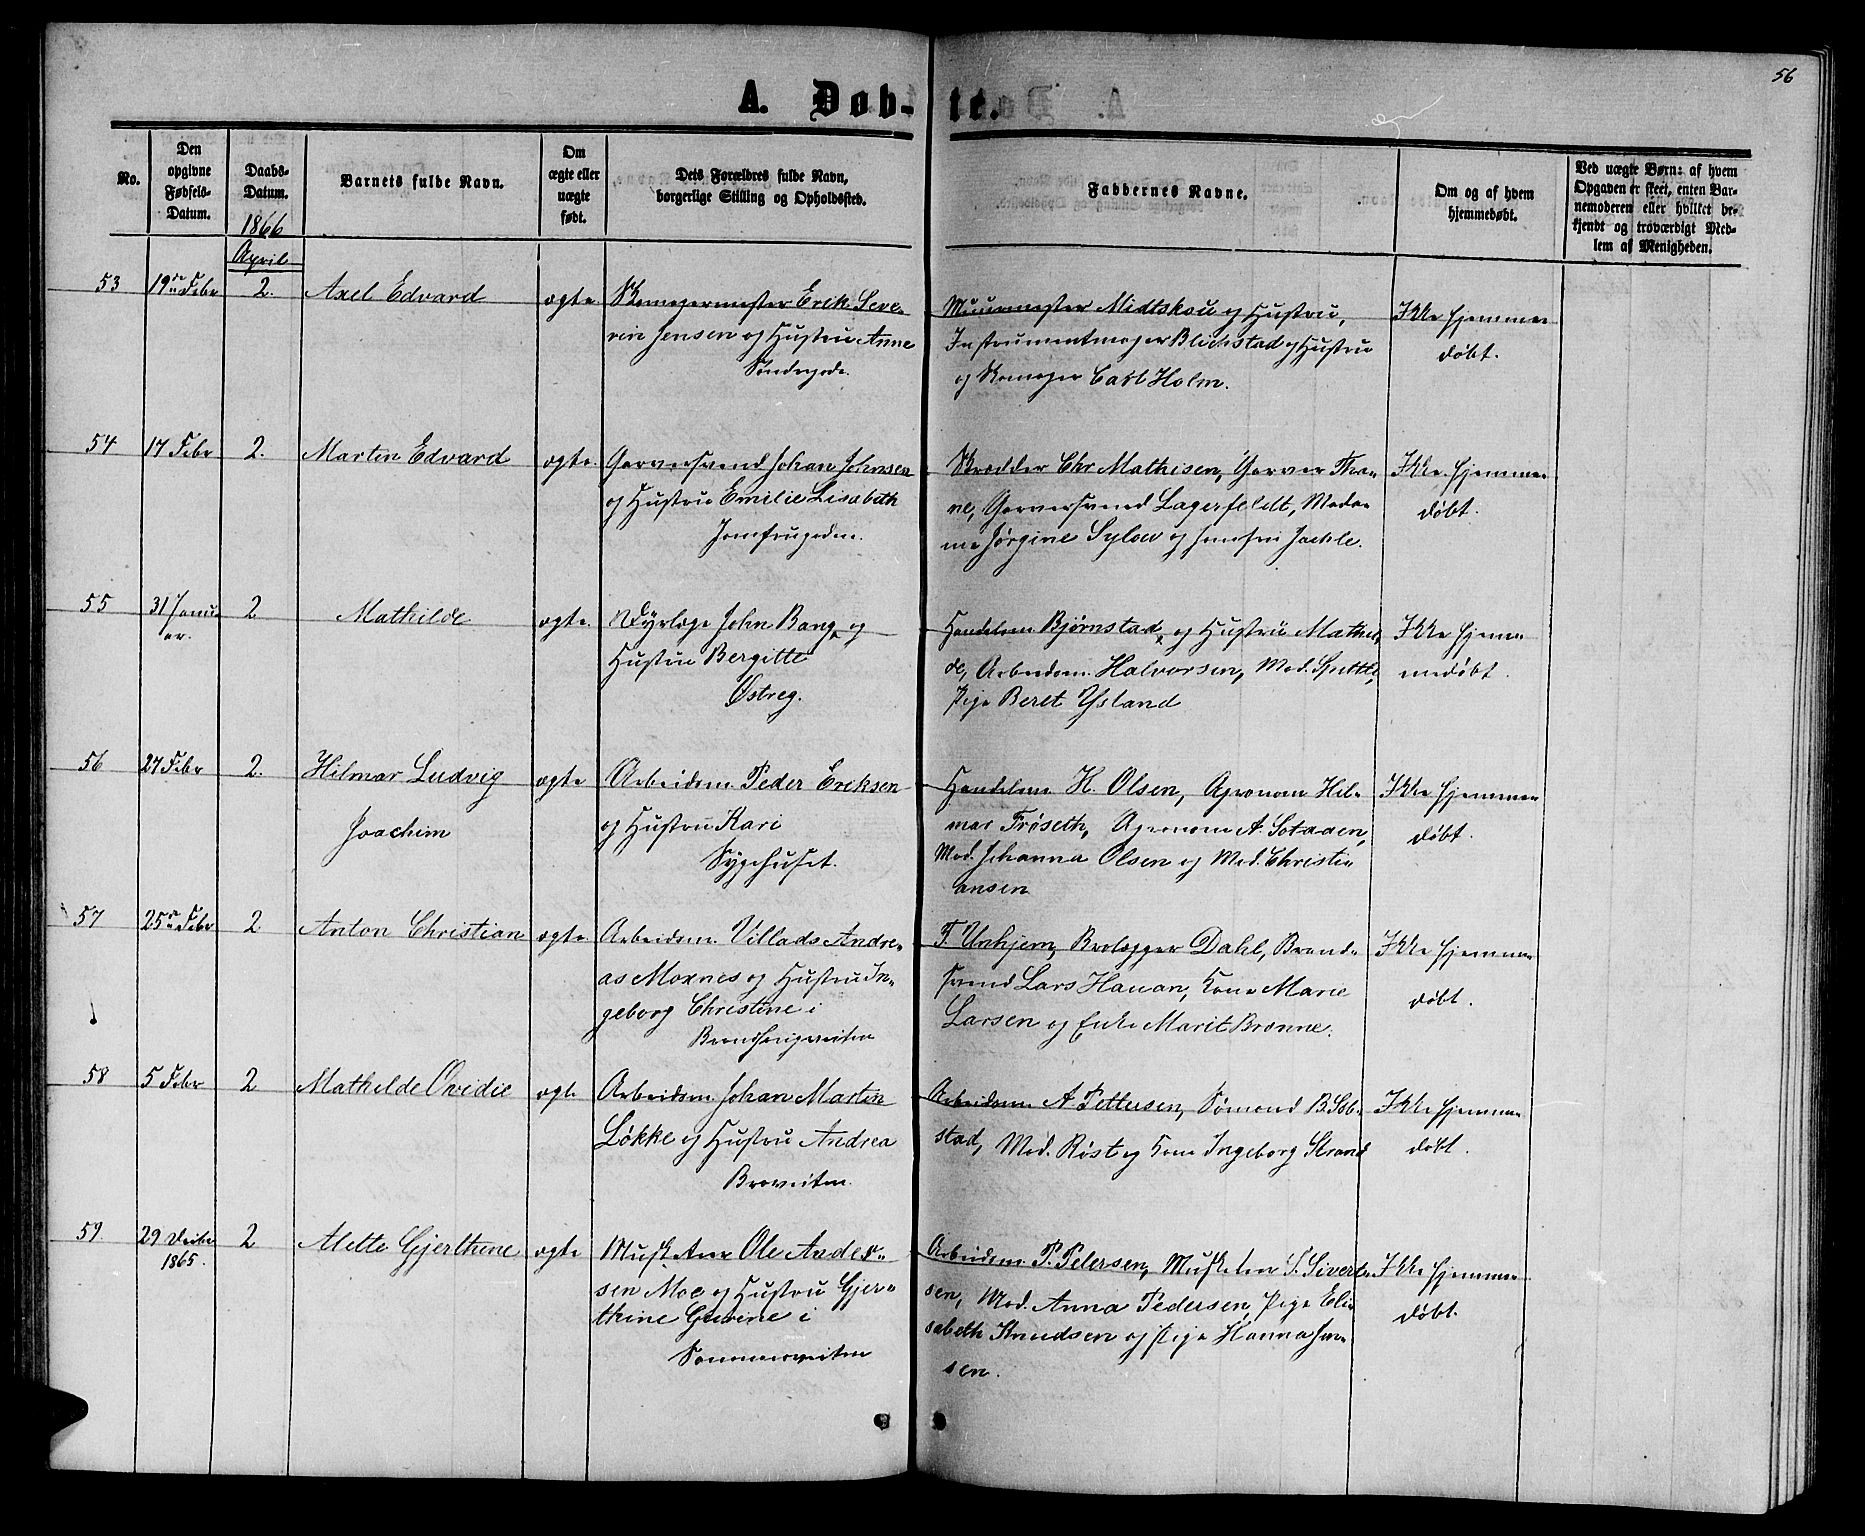 56
A. Døb-
te.
No.
Den opgivne Fødsels-Datum.
Daabs-Datum.
Barnets fulde Navn.
Om ægte eller uægte født.
Dets Forældres fulde Navn,
borgerlige Stilling og Opholdssted.
Faddernes Navne.
Om og af hvem
hjemmedøbt.
Ved uægte Børn: af hvem
Opgaven er skeet, enten Bar-
nemoderen eller hvilket be-
kjendt og troværdigt Med-
lem af Menigheden.
1866
April
53 19de Febr 2. Axel Edvard ægte Skomagermester Erik Seve-
rin Jensen og Hustru Anne
Søndregade.
Muurmester Midtskou og Hustru,
Instrumentmager Blichstad og Hustru
og Skomager Carl Holm.
Ikke hjemme
døbt.
54 17 Febr 2. Martin Edvard ægte. Garversvend Johan Johnsen
og Hustru Emilie Lisabeth
Jomfrugaden.
Skrædder Chr Mathisen, Garver Tha-
ne, Garversvend Lagerfeldt, Mada-
me Jørgine Sylow og Jomfru
Ikke hjemme
døbt.
55 31 Janu-
ar. 2 Mathilde ægte. Dyrlæge John Bang og
Hustru Bergitte
Østreg.
Handelsm Bjørnstad og Hustru Mathil-
de, Arbeidsm. Halvorsen, Mad.
Pige Beret Ysland
Ikke hjem-
medøbt.
56 27 Febr 2. Hilmar Ludvig
Joachim
ægte Arbeidsm Peder Eriksen
og Hustru Kari
Sygehuset.
Handelsm K. Olsen, Agronom Hil-
mar Trøseth, Agronom A. Sotaaen,
Mad. Johanna Olsen og Mad. Christi-
ansen
Ikke hjemme
døbt.
57 25de Febr 2 Anton Christian ægte Arbeidsm. Villads Andre-
as Moxnes og Hustru In-
geborg Christine i
Brandhaugveiten
F. Unhjem, Brolægger Dahl, Brand-
svend Lars Hauan, Kone Marie
Larsen og Enke Marit Brønne.
Ikke hjemme
døbt.
58 5 Febr 2 Mathilde Ovidie ægte Arbeidsm Johan Martin
Løkke og Hustru Andrea
Broveiten.
Arbeidsm. A Pettersen, Sømand B. Sol-
stad, Mad. Røst og Kone Ingeborg Strand
Ikke hjemme
døbt.
59 29 Decbr
1865. 2 Mette Gjerthine ægte Musketeer Ole Ander-
sen Moe og Hustru Gjer-
thine i
Sommerveiten
Arbeidsm P. Petersen, Musketeer S. Sivert-
sen, Mad. Anna Pedersen, Pige Eli-
sabeth Knudsen og Pige Hanna Jen-
sen.
Ikke hjemme
døbt.